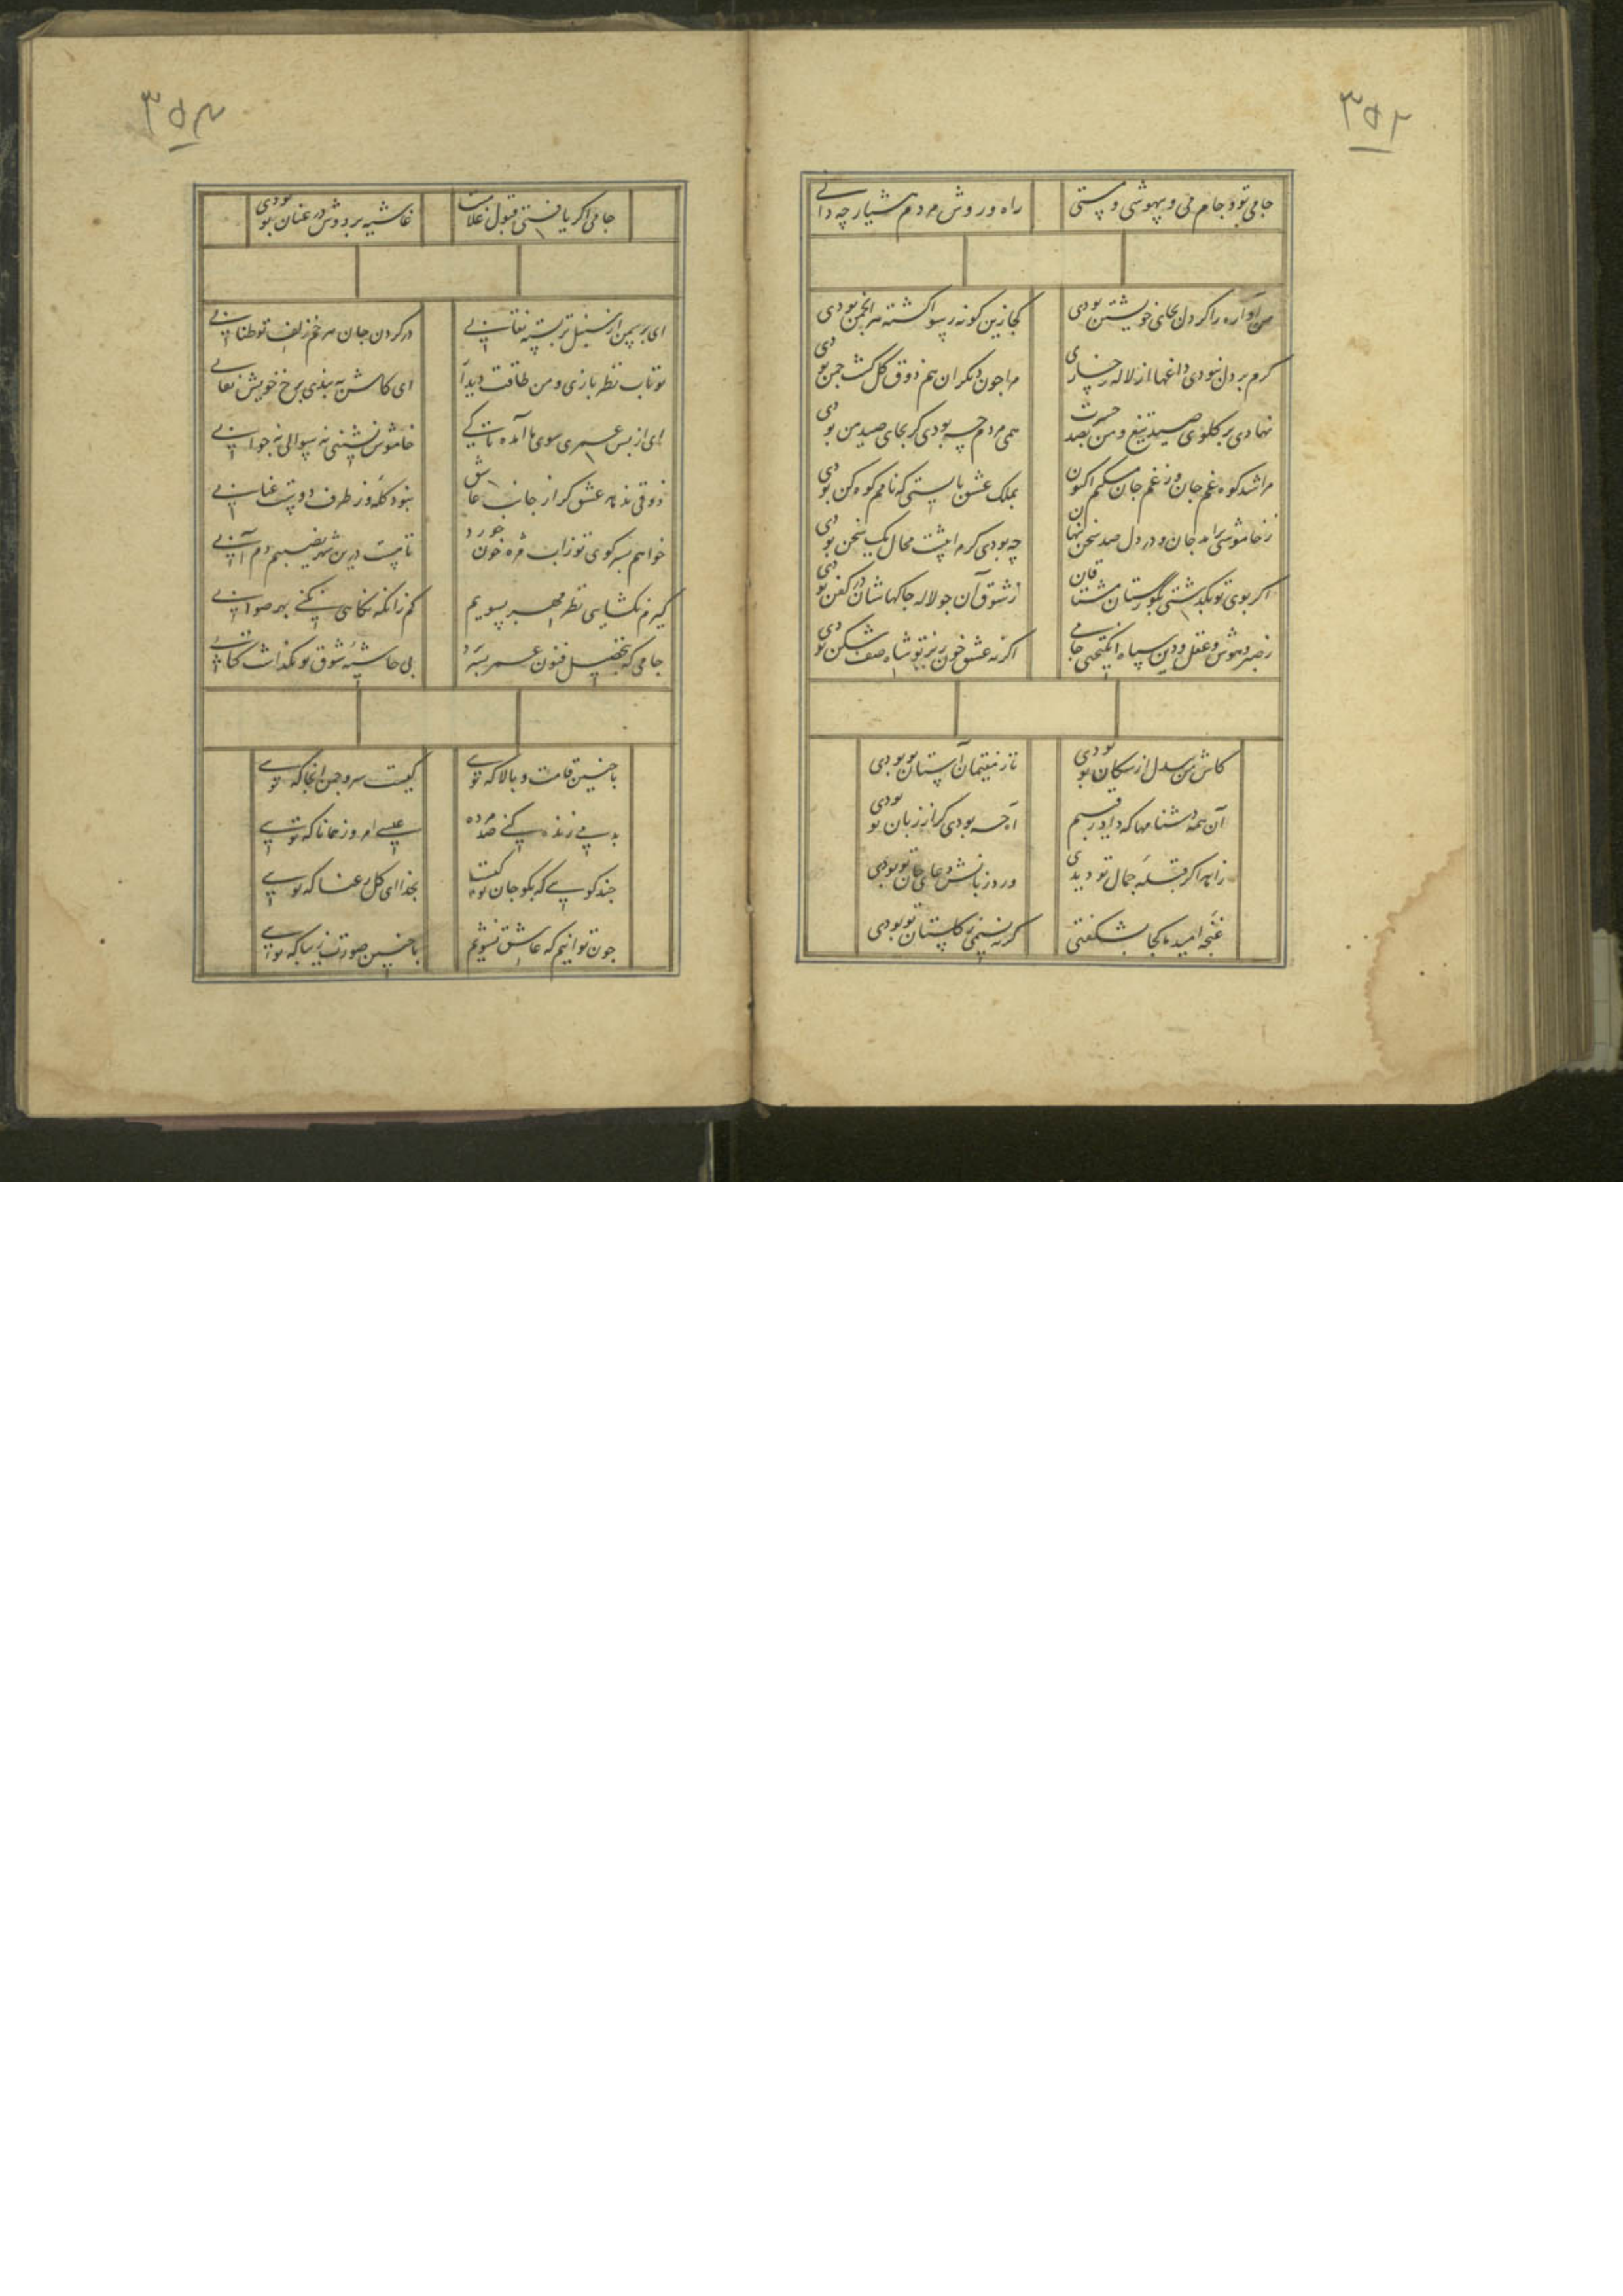 ۳۵۲
جامی تو و جام می و بیهوشی و مستی
راه و روش مردم هشیار چه دانی
من آواره را کر دل بجای خویشتن بودی
کجا زین کونه رسوا کشته هر انجمن بودی
کرم بر دل نبودی داغها از لاله رخساری
مرا چون دیکران هم ذوق کل کشت چمن بودی
نهادی بر کلوی صید تیغ و من بصد حسرت
همی مردم چه بودی کر بجای صید من بودی
مرا شد کوه غم جان و ز غم جان میکنم اکنون
بملک عشق بایستی که نامم کوه کن بودی
ز خاموشی برآمد جان و در دل صد سخن پنهان
چه بودی کر مرا پیشت مجال یک سخن بودی
اکر بوی تو بکذشتی بکورستان مشتاقان
ز شوق آن چو لاله چاکهاشان در کفن بودی
ز صبر و هوش و عقل و دین سپاه انکیختی جامی
اکر نه عشق خون ریز تو شاه صف شکن بودی
کاش من بیدل از سکان تو بودی
تا ز مقیمان آستان تو بودی
آن همه دشنامها که داد رقیبم
آه چه بودی کر از زبان تو بودی
زاهد اکر قبله جمال تو دیدی
ورد زبانش دعای جان تو بودی
غنچه امید ما کجا بشکفتی
کر نه نسیمی ز کلستان تو بودی
۳۵۳
جامی اکر یافتی قبول غلامیت
غاشیه بر دوش در عنان تو بودی
ای بر سمن از سنبل تر بسته نقابی
در کردن جان هر خم زلف تو طنابی
تو تاب نظر بازی و من طاقت دیدار
ای کاش به بندی برخ خویش نقابی
ای از پس عمری سوی ما آمده تا کی
خاموش نشینی نه سوالی نه جوابی
ذوقی ندهد عشق کر از جانب عاشق
نبود کله وز طرف دوست عتابی
خواهم بسر کوی تو زاب مژه خون خورد
تا هست درین شهر نصیبم دم آبی
کیرم نکشایی نظر مهر بسویم
کم زانکه نکاهی نکنی بهر صوابی
جامی که بتحصیل فنون عمر بسر برد
بی حاشیه شوق تو نکذاشت کتابی
با چنین قامت و بالا که تویی
کیست سرو چمن آنجا که تویی
بدمی زنده کنی صد مرده
عیسی امروز همانا که تویی
چند کویی که بکو جان تو کیست
بخدا ای کل رعنا که تویی
چون توانیم که عاشق نشویم
با چنین صورت زیبا که تویی